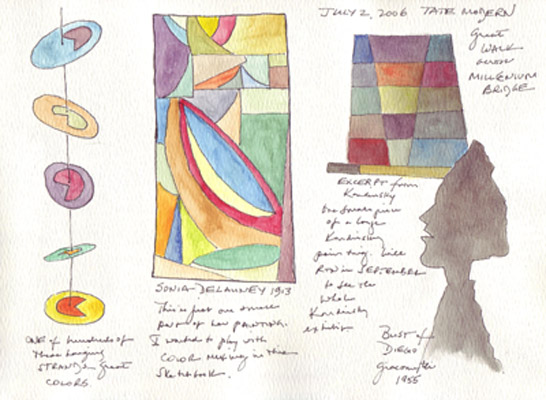 JULY 2, 2006 TATE MODERN
Great
WALK
across
MILLENIUM
BRIDGE
EXCERPT from
Kandinsky
of a large
Kandinsky
painting. Will
in SEPTEMBER
to see the
whole
Kandinsky
exhibit
SONIA DELAUNEY 1913
This is just one small
part of her PAINTING.
I wanted to play with
COLOR in this
sketchbook.
ONE of hundreds of
these hanging
STRANDS. Great
COLORS.
Bust of
DIEGO
Giacometti
1955